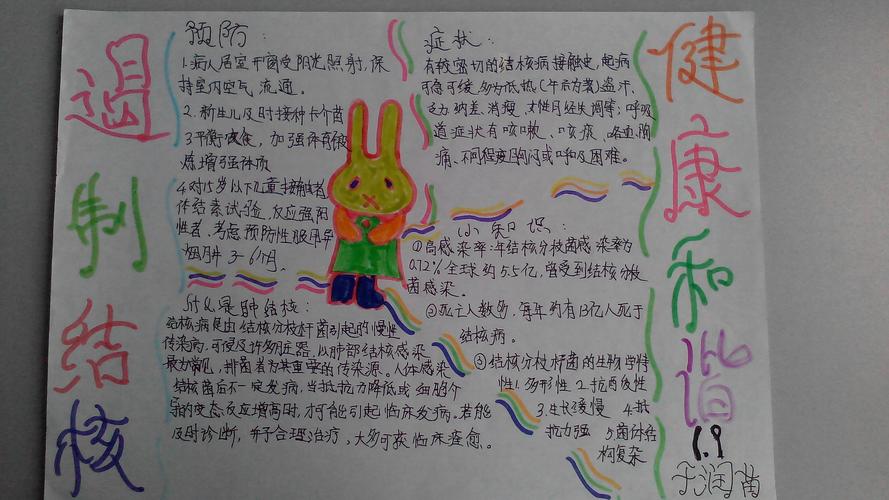 遏制结核
预防:
1.病人居室开窗受阳光照射,保
持室内空气流通。
2.新生儿及时接种卡介苗
3平衡 加强体育锻
炼增强体质
4.对15岁以下儿童接触者
体结素试验,反应强阳
性者,考虑预防性服用异
烟肼3-6个月。
什么是肺结核:
结核病是由结核分枝杆菌引起的慢性
传染病,可侵及许多脏器,以肺部结核感染
最为常见,排菌者为其重要的传染源。人体感染
结核菌后不一定发病,当抵抗力降低或细胞介
导的变态反应增高时,才可能引起临床发病。若能
及时诊断,并予合理治疗,大多可获临床痊愈。
症状:
有较密切的结核病接触史,起病
可急可缓,多为低热(午后为著)盗汗、
乏力纳差、消瘦、女性月经失调等;呼吸
道症状有咳嗽、咳痰、咯血、胸
痛、不同程度胸闷或呼吸困难。
小知识:
①高感染率:年结核分枝菌感染率为
0.72%全球约5.5亿,曾受到结核分枝
菌感染。
②死亡人数多,每年约有13亿人死于
结核病。
③结核分枝杆菌的生物学特
性1.多形性 2.抗酸性
3.生长缓慢 4.抵
抗力强 5.菌体结
构复杂
健康和谐
1.9
于润苗